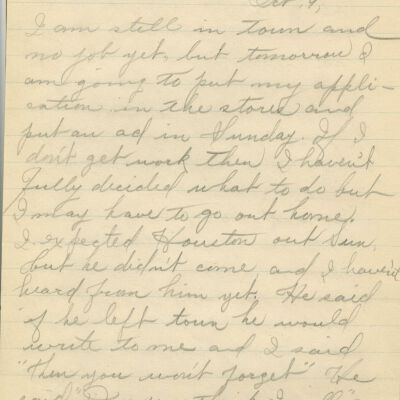 Oct. 9,
I am still in town and
no job yet, but tomorrow I
am going to put my appli-
cation in the stores and
put an ad in Sunday. If I
don't get work then I haven't
fully decided what to do but
I may have to go out home.
I expected Houston out Sun.
but he didn't come and I haven't
heard from him yet. He said
if he left town he would
write to me and I said
"then you won't forget" He
said "Do you think I will"